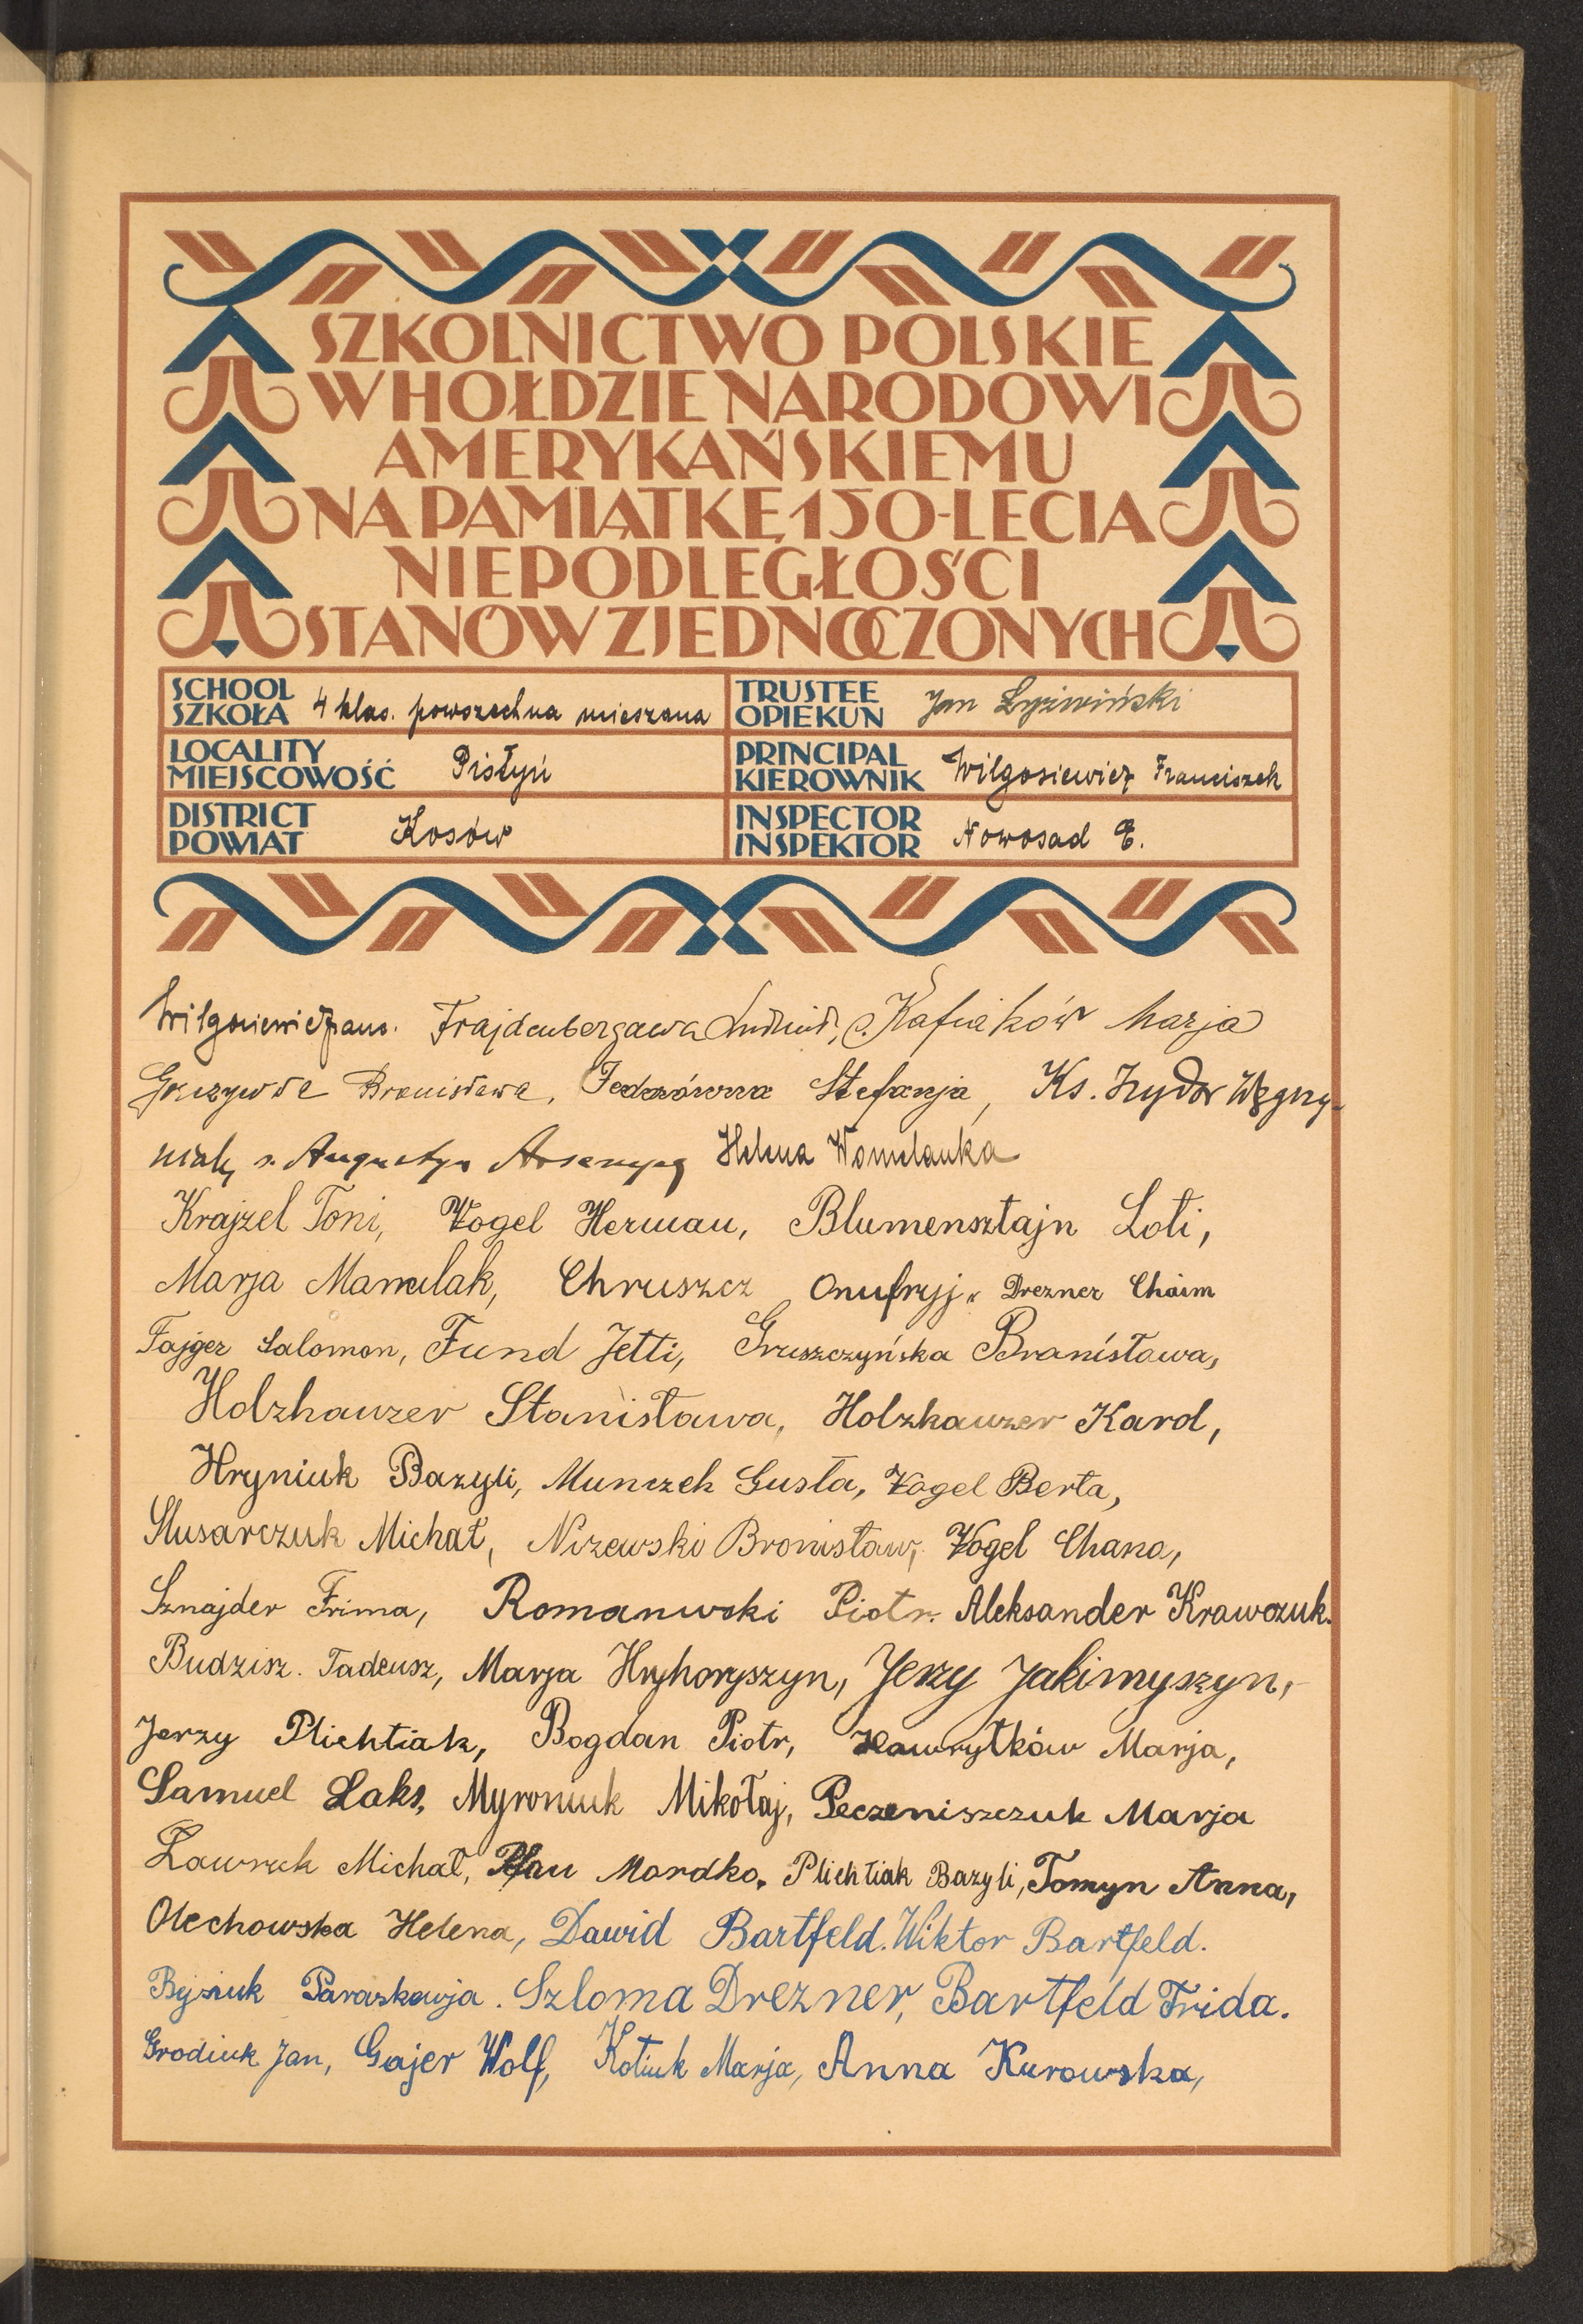 SZKOLNICTWO POLSKIE
W HOŁDZIE NARODOWI
AMERYKAŃSKIEMU
NA PAMIĄTKĘ 150-LECIA
NIEPODLEGŁOŚCI
STANÓW ZJEDNOCZONYCH
SCHOOL
SZKOŁA 4 klas. powszechna mieszana
TRUSTEE
OPIEKUN Jan
LOCALITY
MIEJSCOWOŚĆ Pistyń
PRINCIPAL
KIEROWNIK Wilgosiewicz Franciszek
DISTRICT
POWIAT Kosów
INSPECTOR
INSPEKTOR Nowosad E.
Kafiaków Marja
Bronisława, Fedorówna Stefanja, Ks. Izydor Węgrzy-
niak, Helena
Krajzel Toni, Vogel Herman, Blumensztajn Loti,
Marja Manulak, Chruszcz Onufryj, Drezner Chaim
Fajger Salomon, Fund Jetti, Gruszczyńska Branisława,
Holzhauzer Stanisława, Holzhauzer Karol,
Hryniuk Bazyli, Munczek Gusta, Vogel Berta,
Slusarczuk Michał, Nizewski Bronisław, Vogel Chana,
Sznajder Frima, Romanwski Piotr. Aleksander Krawczuk.
Budzisz. Tadeusz, Marja Hryhoryszyn, Jerzy Jakimyszyn,
Jerzy Plichtiak, Bogdan Piotr, Hawryłków Marja,
Samuel Laks, Myroniuk Mikołaj, Peczeniszczuk Marja
Ławruk Michał, Mordko, Plichtiak Bazyli, Tomyn Anna,
Olechowska Helena, Dawid Bartfeld. Wiktor Bartfeld.
Paraskewja. Szloma Drezner, Bartfeld Frida.
Grodiuk Jan, Gajer Wolf, Kotiuk Marja, Anna Kurowska,